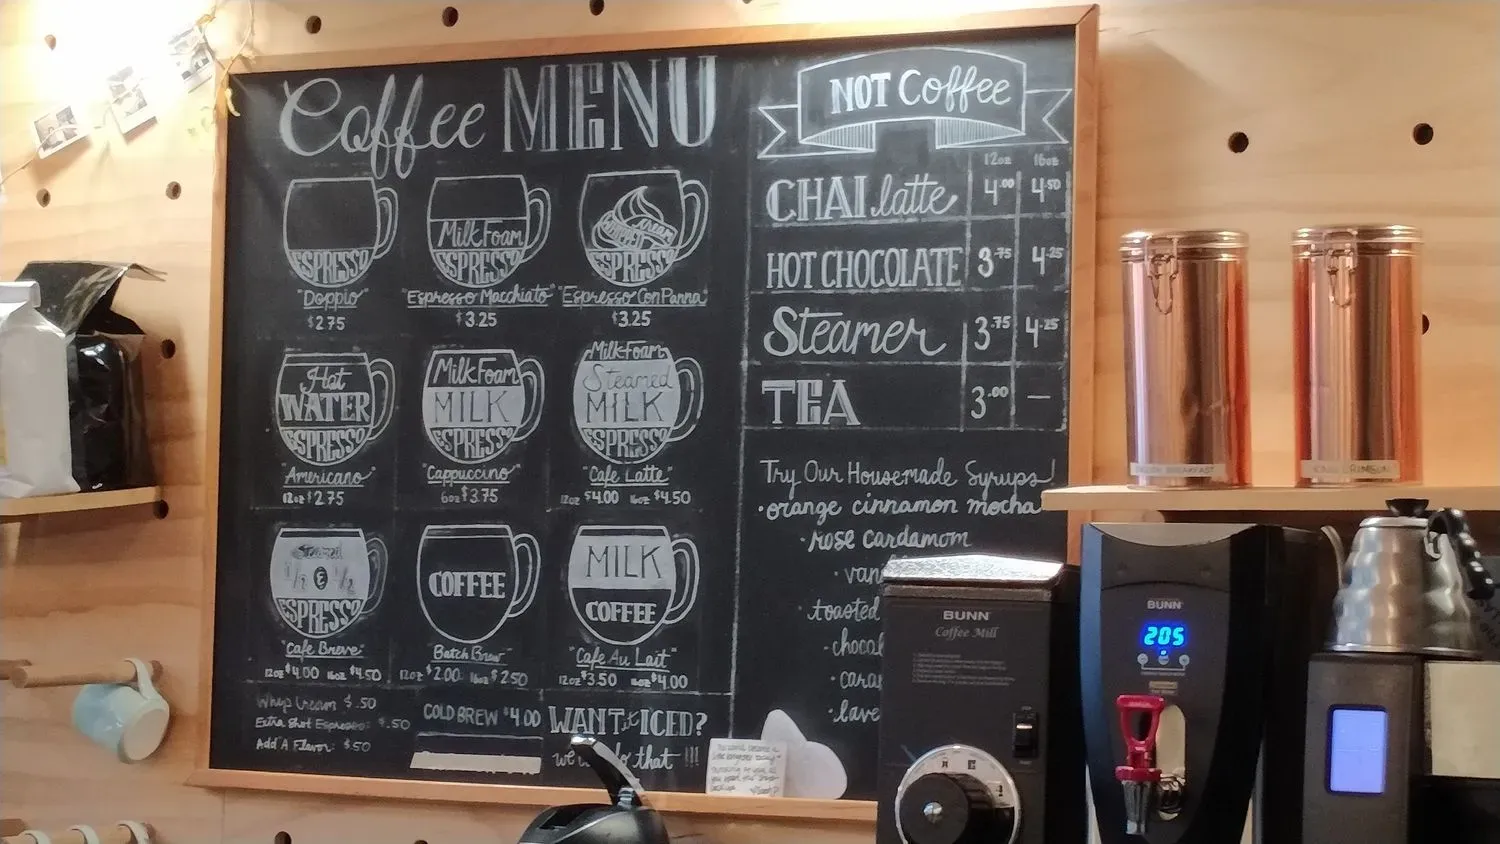 Coffee MENU
ESPRESSO
"Doppio"
$2.75
Milk Foam
ESPRESSO
"Espresso Macchiato"
$3.25
Whipped Cream
ESPRESSO
"Espresso Con Panna"
$3.25
Hot
WATER
ESPRESSO
"Americano"
12oz $2.75
Milk Foam
MILK
ESPRESSO
"Cappuccino"
6oz $3.75
Milk Foam
Steamed
MILK
ESPRESSO
"Cafe Latte"
12oz $4.00 16oz $4.50
Steamed
1/2 & 1/2
ESPRESSO
"Cafe Breve"
12oz $4.00 16oz $4.50
COFFEE
"Batch Brew"
12oz $2.00 16oz $2.50
MILK
COFFEE
"Cafe Au Lait"
12oz $3.50 16oz $4.00
Whip Cream $.50
Extra Shot Espresso: $.50
Add A Flavor: $.50
COLD BREW $4.00
WANT it ICED?
that !!!
NOT Coffee
12oz 16oz
CHAI latte 4.00 4.50
HOT CHOCOLATE 3.75 4.25
Steamer 3.75 4.25
TEA 3.00 —
Try Our Housemade Syrups!
• orange cinnamon mocha
• rose cardamom
• toasted
BUNN
Coffee Mill
BUNN
205